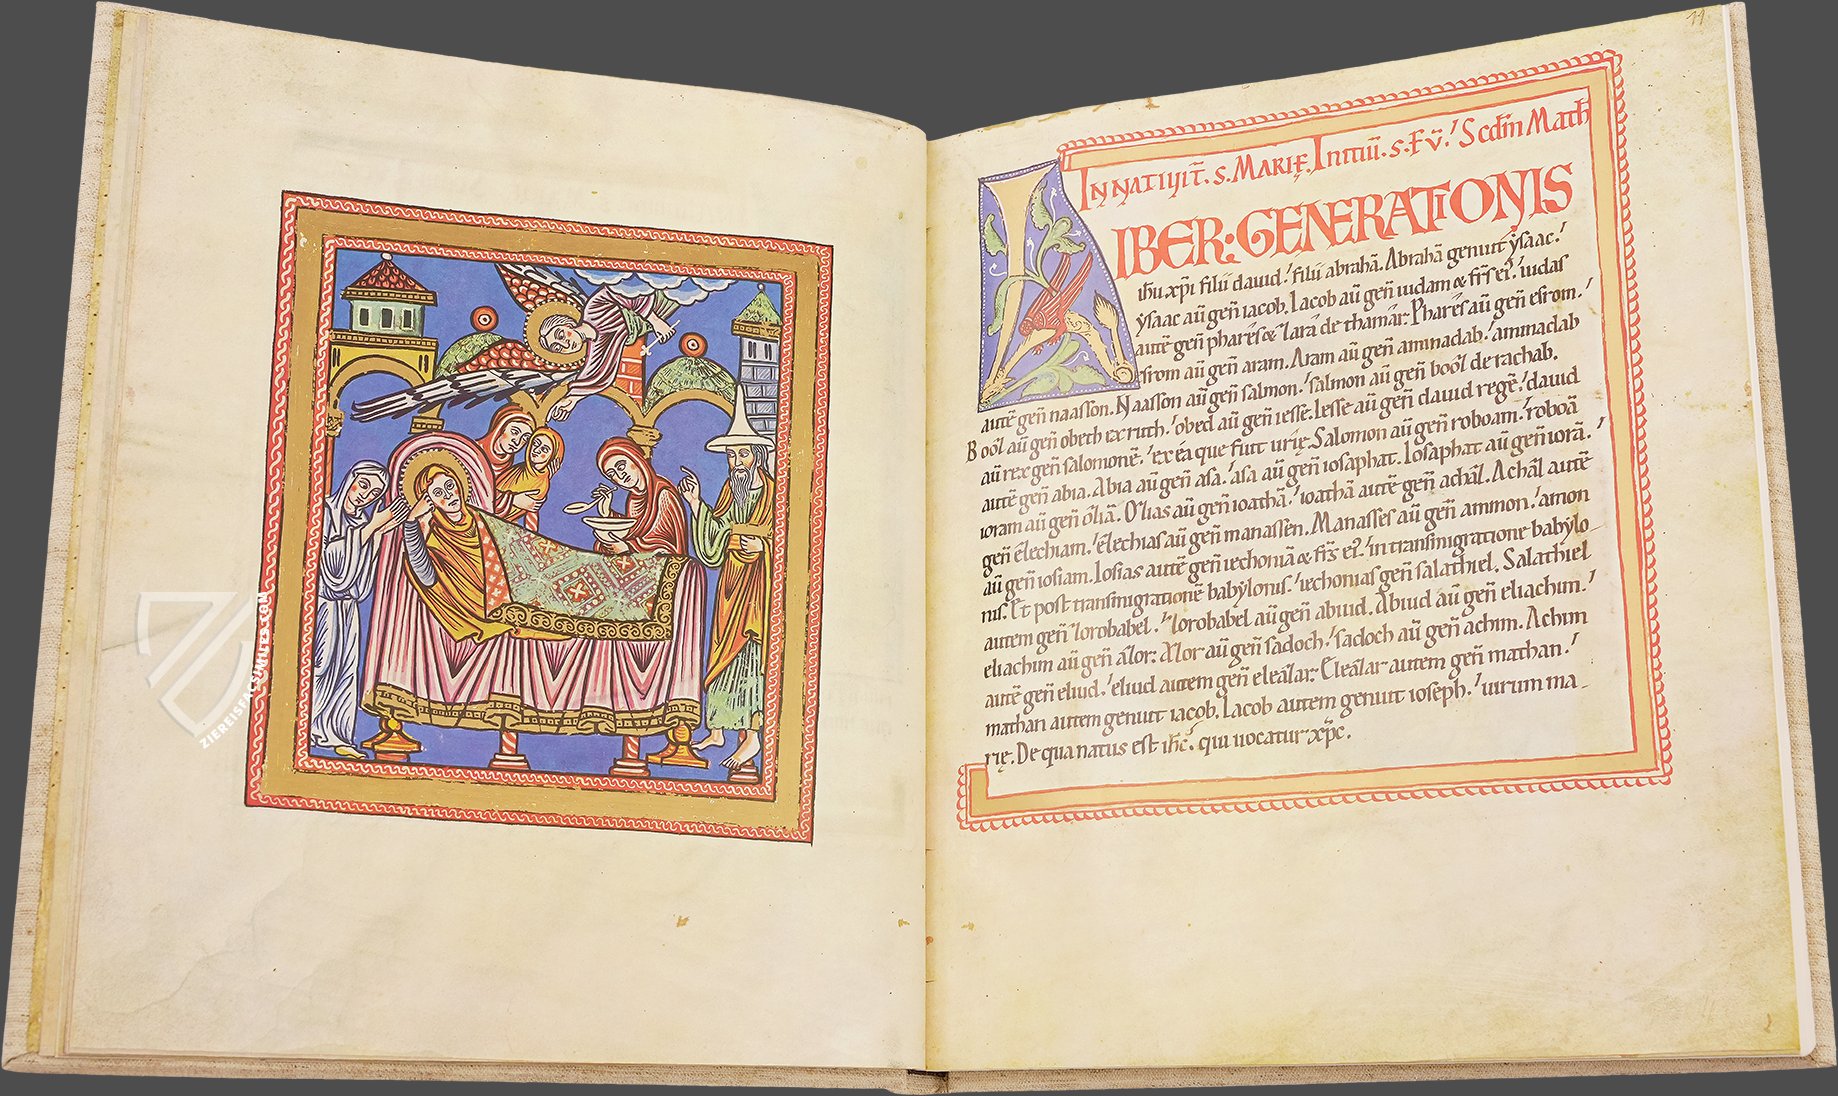 ZIEREISFACSIMILES.COM
11
IN NATIVIT̄. S. MARIĘ. INITIŪ. S. EV̄. Scdm̄ Math̄
LIBER: GENERATIONIS
ih̄u xp̄i filii dauid. filii abrahā. Abrahā genuit ẏsaac.
ẏsaac aū gen̄ iacob. Iacob aū gen̄ iudam & fr̄s ei'. iudas
autē gen̄ phares & zara de thamar. Phares aū gen̄ esrom.
esrom aū gen̄ aram. Aram aū gen̄ aminadab. aminadab
autē gen̄ naasson. Naasson aū gen̄ salmon. salmon aū gen̄ booz de rachab.
Booz aū gen̄ obeth ex ruth. obed aū gen̄ iesse. Iesse aū gen̄ dauid regē. dauid
aū rex gen̄ salomonē. ex ea que fuit urię. Salomon aū gen̄ roboam. roboā
autē gen̄ abia. Abia aū gen̄ asa. asa aū gen̄ iosaphat. Iosaphat aū gen̄ iorā.
ioram aū gen̄ oziā. Ozias aū gen̄ ioathā. ioathā autē gen̄ achaz. Achaz autē
gen̄ ezechiam. ezechias aū gen̄ manassen. Manasses aū gen̄ ammon. amon
aū gen̄ iosiam. Iosias autē gen̄ iechoniā & fr̄s ei'. in transmigratione babylo-
nis. Et post transmigrationē babylonis. iechonias gen̄ salathiel. Salathiel
autem gen̄ zorobabel. zorobabel aū gen̄ abiud. Abiud aū gen̄ eliachim.
eliachim aū gen̄ azor. Azor aū gen̄ sadoch. sadoch aū gen̄ achim. Achim
autē gen̄ eliud. eliud autem gen̄ eleazar. Eleazar autem gen̄ mathan.
mathan autem genuit iacob. Iacob autem genuit ioseph. uirum ma-
rię. De qua natus est ih̄c. qui uocatur xp̄c.